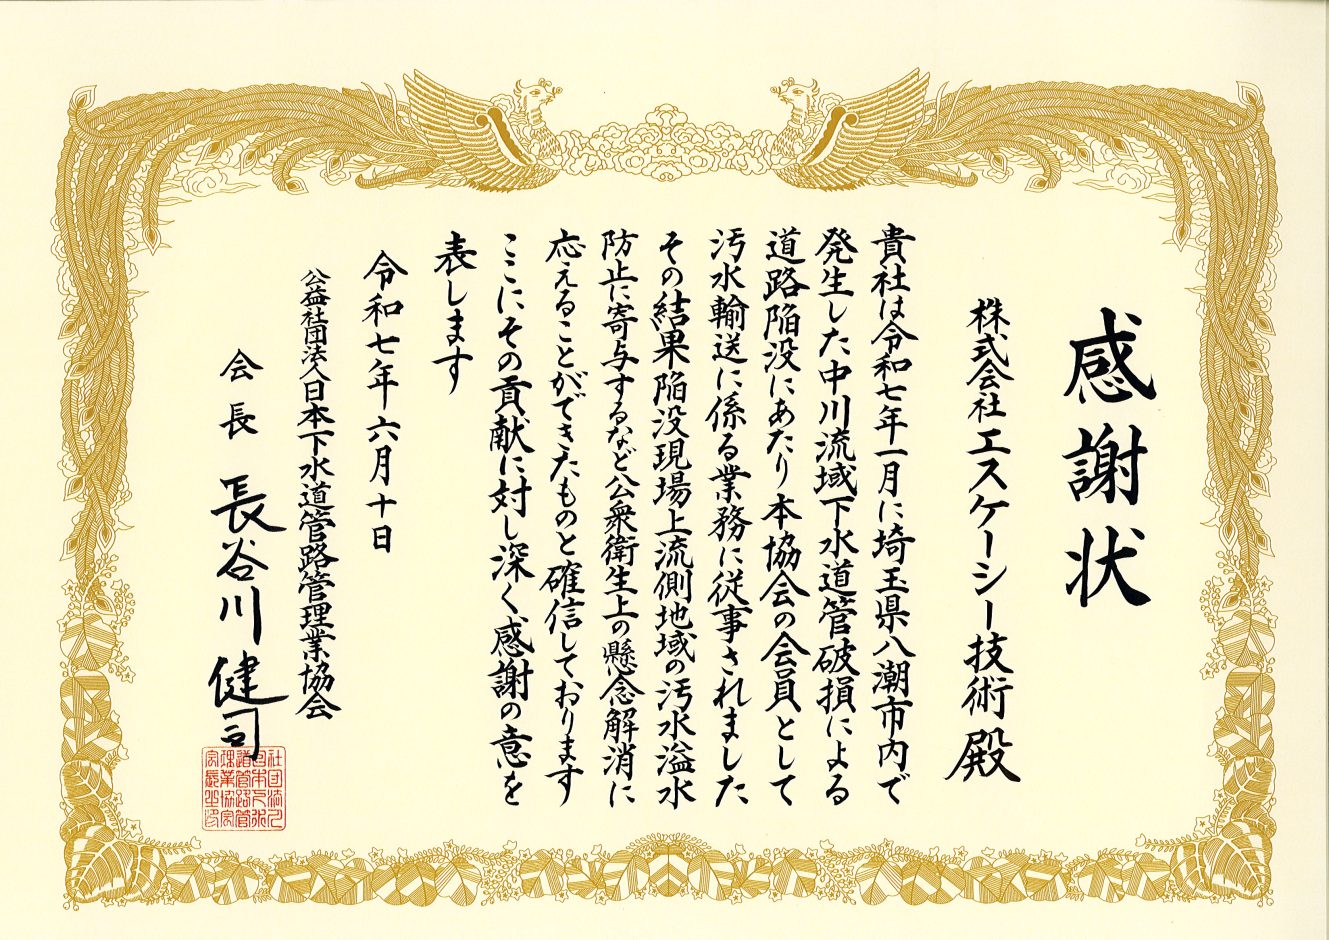 感謝状
株式会社エスケーシー技術殿
貴社は令和七年一月に埼玉県八潮市内で
発生した中川流域下水道管破損による
道路陥没にあたり本協会の会員として
汚水輸送に係る業務に従事されました
その結果陥没現場上流側地域の汚水溢水
防止に寄与するなど公衆衛生上の懸念解消に
応えることができたものと確信しております
ここにその貢献に対し深く感謝の意を
表します
令和七年六月十日
公益社団法人日本下水道管路管理業協会
会長 長谷川健司